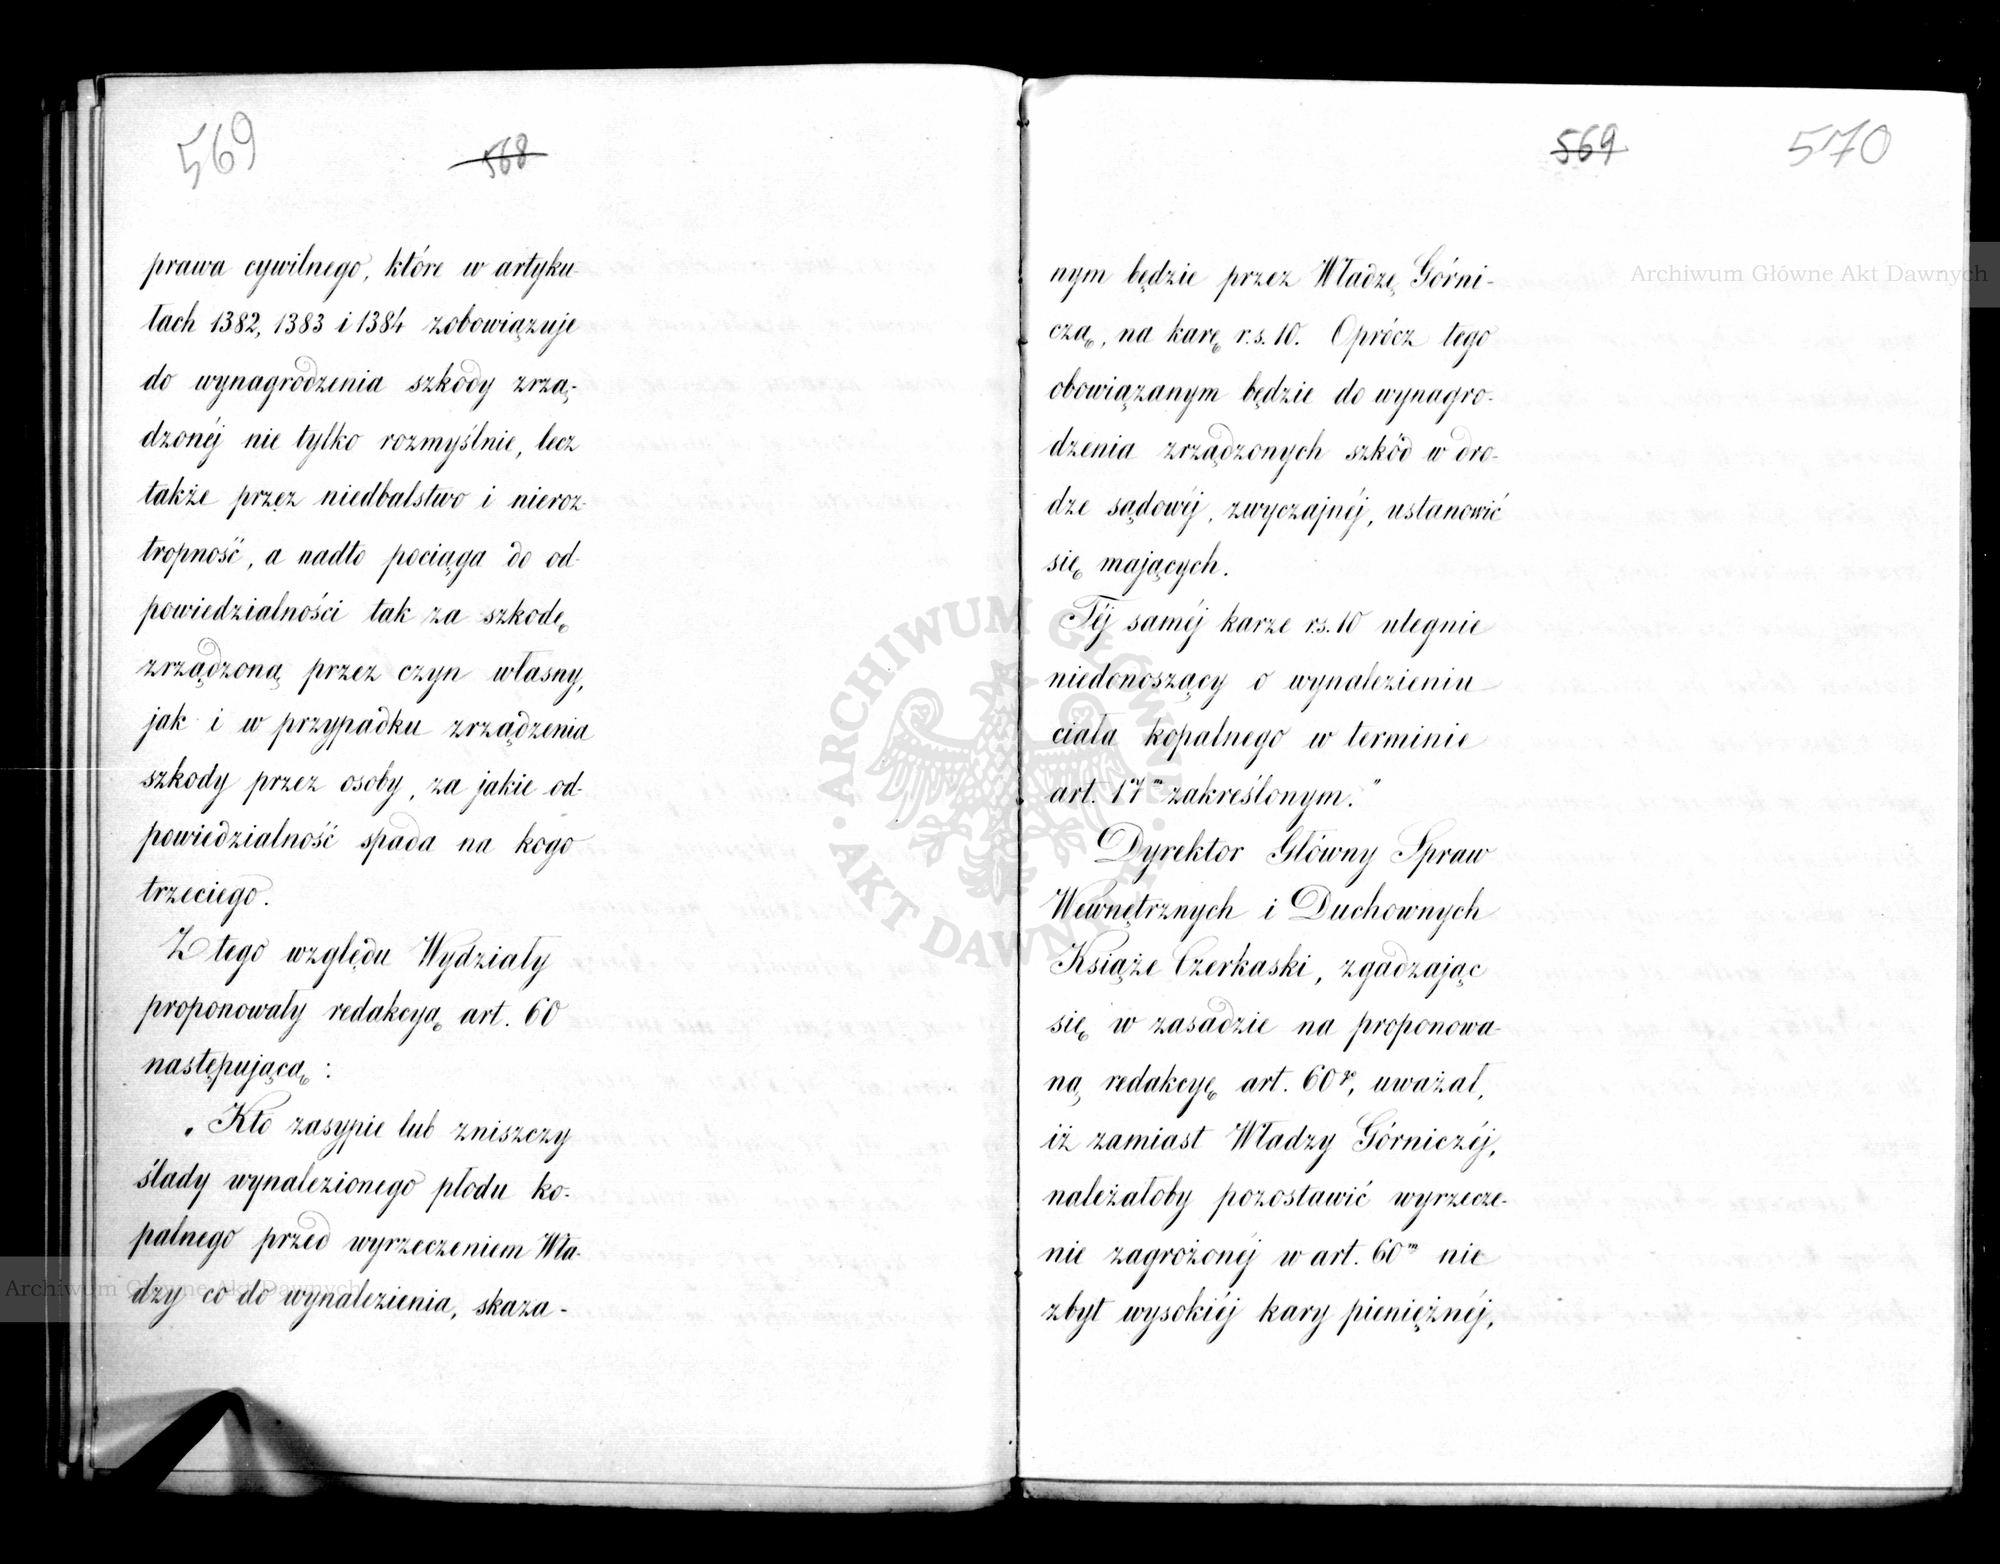 569
568
prawa cywilnego, które w artyku-
łach 1382, 1383 i 1384 zobowiązuje
do wynagrodzenia szkody zrzą-
dzonéj nie tylko rozmyślnie, lecz
także przez niedbalstwo i nieroz-
tropność, a nadto pociąga do od-
powiedzialności tak za szkodę
zrządzoną przez czyn własny,
jak i w przypadku zrządzenia
szkody przez osoby, za jakie od-
powiedzialność spada na kogo
trzeciego.
Z tego względu Wydziały
proponowały redakcyą art. 60
następującą:
„Kto zasypie lub zniszczy
ślady wynalezionego płodu ko-
palnego przed wyrzeczeniem Wła-
dzy co do wynalezienia, skaza-
569
570
nym będzie przez Władzę Górni-
czą, na karę r.s. 10. Oprócz tego
obowiązanym będzie do wynagro-
dzenia zrządzonych szkód w dro-
dze sądowéj, zwyczajnéj, ustanowić
się mających.
Téj saméj karze r.s. 10 ulegnie
niedonoszący o wynalezieniu
ciała kopalnego w terminie
art. 17m zakreślonym."
Dyrektor Główny Spraw
Wewnętrznych i Duchownych
Książe Czerkaski, zgadzając
się w zasadzie na proponowa-
ną redakcyę art. 60go, uważał,
iż zamiast Władzy Górniczéj,
należałoby pozostawić wyrzecze-
nie zagrożonéj w art. 60m nie
zbyt wysokiéj kary pieniężnéj,
Archiwum Główne Akt Dawnych
Archiwum Główne Akt Dawnych
ARCHIWUM GŁÓWNE AKT DAWNYCH